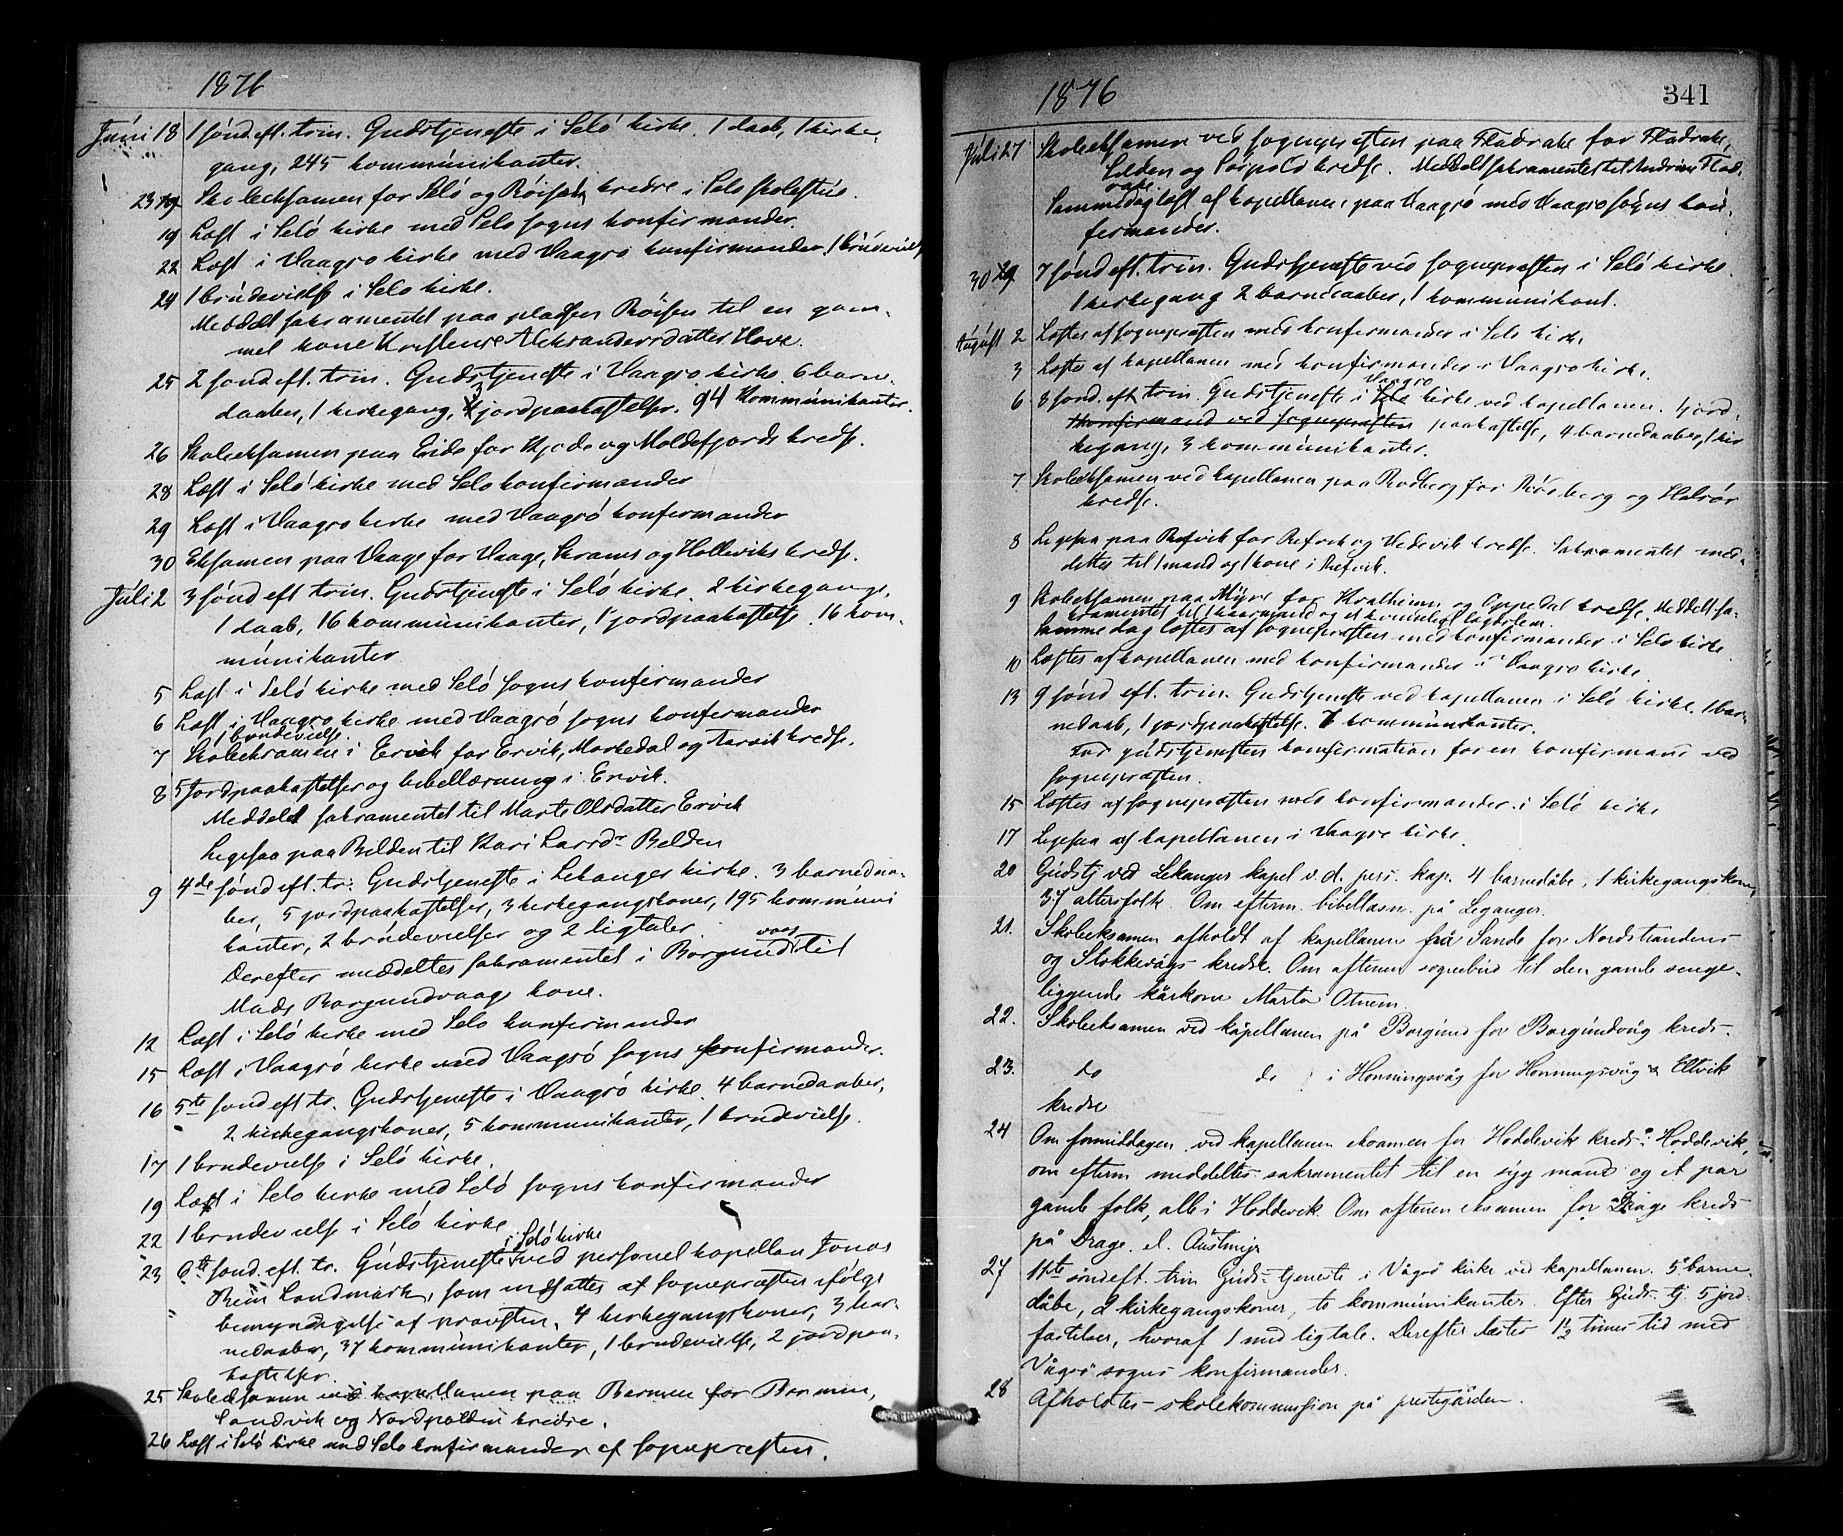 1876
Juni 18 1 sønd. eft. trin. Gudstjeneste i Selø kirke. 1 daab, 1 kirke-
gang, 245 kommunikanter.
23 Skoleeksamen for Selø og Røisen kredse i Selø skolestue.
19 Læst i Selø kirke med Selø sogns konfirmander.
22 Læst i Vaagsø kirke med Vaagsø konfirmander. 1 brudevielse
24 1 brudevielse i Selø kirke.
Meddelt sakramentet paa pladsen Røisen til en gam-
mel kone Aleksandersdatter Hove.
25 2 sønd eft. trin. Gudstjeneste i Vaagsø kirke. 6 barne-
daaber, 1 kirkegang, 3 jordpaakastelser. 94 kommunikanter.
26 Skoleeksamen paa Eide for og Moldefjords kredse.
28 Læst i Selø kirke med Selø konfirmander
29 Læst i Vaagsø kirke med Vaagsø konfirmander
30 Eksamen paa Vaage for Vaage, Skrams og Holleviks kredse.
Juli 2 3 sønd eft trin. Gudstjeneste i Selø kirke. 2 kirkegange,
1 daab, 16 kommunikanter, 1 jordpaakastelse. 16 kom-
munikanter
5 Læst i Selø kirke med Selø sogns konfirmander
6 Læst i Vaagsø kirke med Vaagsø sogns konfirmander
1 brudevielse.
7 Skoleeksamen i Ervik for Ervik, Morkedal og Aarvik kredse.
8 5 Jordpaakastelser og bibellæsning i Ervik.
Meddelt sakramentet til Marte Olsdatter Ervik
Ligesaa paa Belden til Kari Larsdr Belden
9 4de sønd eft. tr. Gudstjeneste i Lekanger kirke. 3 barnedaa-
ber, 5 jordpaakastelser, 3 kirkegangskoner, 195 kommuni
kanter, 2 brudevielser og 2 ligtaler.
vaag
Derefter meddeltes sakramentet i Borgund til
Mads Borgundvaags kone.
12 Læst i Selø kirke med Selø konfirmander
15 Læst i Vaagsø kirke med Vaagsø sogns konfirmander.
16 5te sønd eft tr. Gudstjeneste i Vaagsø kirke. 4 barnedaaber,
2 kirkegangskoner, 5 kommunikanter, 1 brudevielse.
17 1 brudevielse i Selø kirke.
19 Læst i Selø kirke med Selø sogns konfirmander
22 1 brudevielse i Selø kirke
i Selø kirke
23 6te sønd. eft. tr. Gudstjeneste ved personel kapellan Jonas
Rein Landmark, som indsattes af sognepræsten ifølge
bemyndigelse af provsten. 4 kirkegangskoner, 3 bar-
nedaaber, 37 kommunikanter, 1 brudevielse, 2 jordpaa-
kastelser.
25 Skoleeksamen ved kapellanen paa Barmen for Barmen,
Sandvik og Nordpollen kredse.
26 Læst i Selø kirke med Selø konfirmander af sognepræsten.
1876 341
Juli 27 Skoleeksamen ved sognepræsten paa Fladrake for Fladrake,
kredse. Meddelt sakramentet til Flad-
rake.
Sammedag læst af kapellanen paa Vaagsø med Vaagsø sogns kon-
firmander.
30 7 sønd eft. trin. Gudstjeneste ved sognepræsten i Selø kirke.
1 kirkegang 2 barnedaaber, 1 kommunikant.
August 2 Læstes af sognepræsten med konfirmander i Selø kirke
3 Læstes af kapellanen med konfirmander i Vaagsø kirke.
Vaagsø
6 8 sønd. eft trin. Gudstjeneste i Selø kirke ved kapellanen. 1 jord-
1 konfirmand ved sognepræsten paakastelse, 4 barnedaaber, 1 kir
kegang, 3 kommunikanter.
7 Skoleeksamen ved kapellanen paa Rødberg for Rødberg og Halsør
kredse.
8 Ligesaa paa Refvik for Refvik og Vedevik kredse. Sakramentet med-
deltes til 1 mand og 1 kone i Refvik.
9 Skoleeksamen paa Myre for og Oppedal kredse. Meddelt sa-
kramentet til 1 kaarmand og et kvindeligt lægdslem.
Samme dag læstes af sognepræsten med konfirmander i Selø kirke.
10 Læstes af kapellanen med konfirmander i Vaagsø kirke.
13 9 sønd eft. trin. Gudstjeneste ved kapellanen i Selø kirke. 1 bar-
nedaab, 1 jordpaakastelse. 7 kommunikanter.
Før gudstjenesten konfirmation for en konfirmand ved
sognepræsten.
15 Læstes af sognepræsten med konfirmander i Selø kirke
17 Ligesaa af kapellanen i Vaagsø kirke.
20 Gudstj ved Lekanger kapel v. d. pers. kap. 4 barnedåbe, 1 kirkegangskone,
37 altersfolk. Om efterm. bibellæsn. på Leganger.
21. Skoleeksamen afholdt af kapellanen frå Sande for Nordstrandens
og Stokkevågs kredse. Om aftenen sognebud til den gamle senge-
liggende kårkone Marta Otnem.
22. Skoleeksamen ved kapellanen på Borgund for Borgundvåg kreds.
23. do do i Honningsvåg for Honningsvåg & Eltvik
kredse
24 Om formiddagen ved kapellanen eksamen for Hoddevik kreds i Hoddevik,
om efterm meddeltes sakramentet til en syg mand og et par
gamle folk, alle i Hoddevik. Om aftenen eksamen for Drage kreds
på Drage. el. Austmyr
27 11te sønd eft. trin Guds-tjeneste i Vågsø kirke ved kapellanen. 5 barne-
dåbe, 2 kirkegangskoner, to kommunikanter. Efter Guds-tj. 5 jord-
fæstelser, hvoraf 1 med ligtale. Derefter læstes 1½ times tid med
Vågsø sogns konfirmander.
28 Afholdtes skolekommission på prestegården.